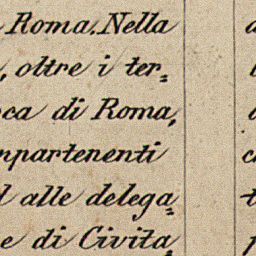 Roma. Nella
, oltre i ter=
ca di Roma,
partenenti
alle delega=
e di Civita